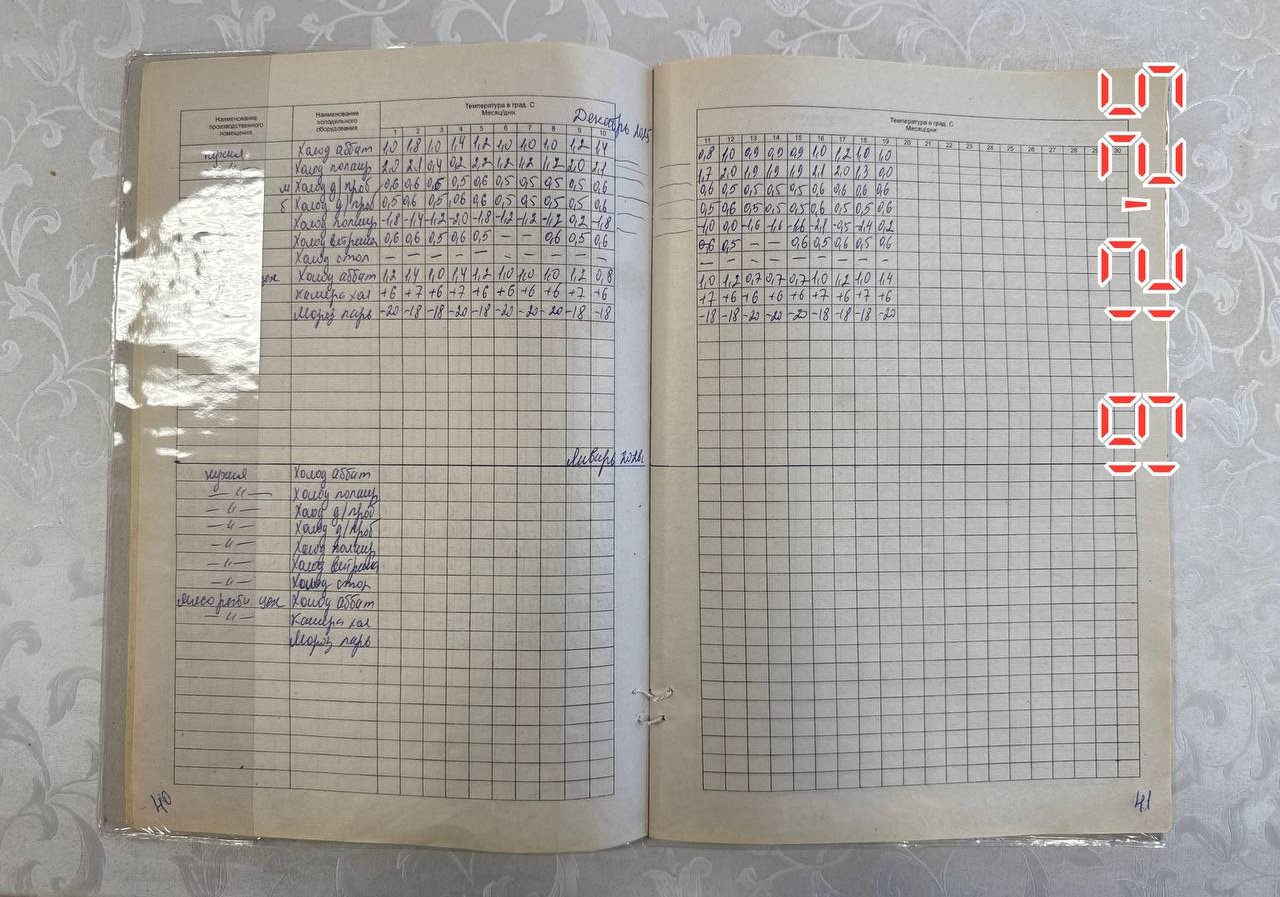 Наименование производственного помещения
Наименование холодильного оборудования
Температура в град. С
Месяц/дни
Декабрь 2025
1 2 3 4 5 6 7 8 9 10
кухня Холод аббат 1,0 1,8 1,0 1,4 1,2 1,0 1,0 1,0 1,2 1,4
Холод полаир 2,0 2,1 0,4 0,2 2,2 1,2 1,2 1,2 2,0 2,1
м Холод д/проб 0,6 0,6 0,6 0,5 0,6 0,5 0,5 0,5 0,5 0,6
б Холод д/проб 0,5 0,6 0,5 0,6 0,6 0,5 0,5 0,5 0,5 0,6
Холод полаир -1,8 -1,4 -1,2 -2,0 -1,8 -1,2 -1,2 -1,2 0,2 -1,8
Холод витрина 0,6 0,6 0,5 0,6 0,5 — — 0,6 0,5 0,6
Холод стол — — — — — — — — — —
цех Холод аббат 1,2 1,4 1,0 1,4 1,2 1,0 1,0 1,0 1,2 0,8
Камера хол +6 +7 +6 +7 +6 +6 +6 +6 +7 +6
Мороз ларь -20 -18 -18 -20 -18 -20 -20 -20 -18 -18
Январь 2026г
кухня Холод аббат
— " — Холод полаир
— " — Холод д/проб
— " — Холод д/проб
— " — Холод полаир
— " — Холод витрина
— " — Холод стол
мясо рыбн. цех Холод аббат
— " — Камера хол
Мороз ларь
40
Температура в град. С
Месяц/дни
11 12 13 14 15 16 17 18 19 20 21 22 23 24 25 26 27 28 29 30
0,8 1,0 0,9 0,9 0,9 1,0 1,2 1,0 1,0
1,7 2,0 1,9 1,9 1,9 2,1 2,0 1,3 0,0
0,6 0,5 0,5 0,5 0,5 0,6 0,6 0,6 0,6
0,5 0,6 0,5 0,5 0,5 0,6 0,5 0,5 0,6
-1,0 0,0 -1,6 -1,6 -1,6 -2,1 -0,5 -2,1 0,2
0,6 0,5 — — 0,6 0,5 0,6 0,5 0,6
— — — — — — — — —
1,0 1,2 0,7 0,7 0,7 1,0 1,2 1,0 1,4
+7 +6 +6 +6 +6 +7 +6 +7 +6
-18 -18 -20 -20 -20 -18 -18 -18 -20
41
19 12 '25